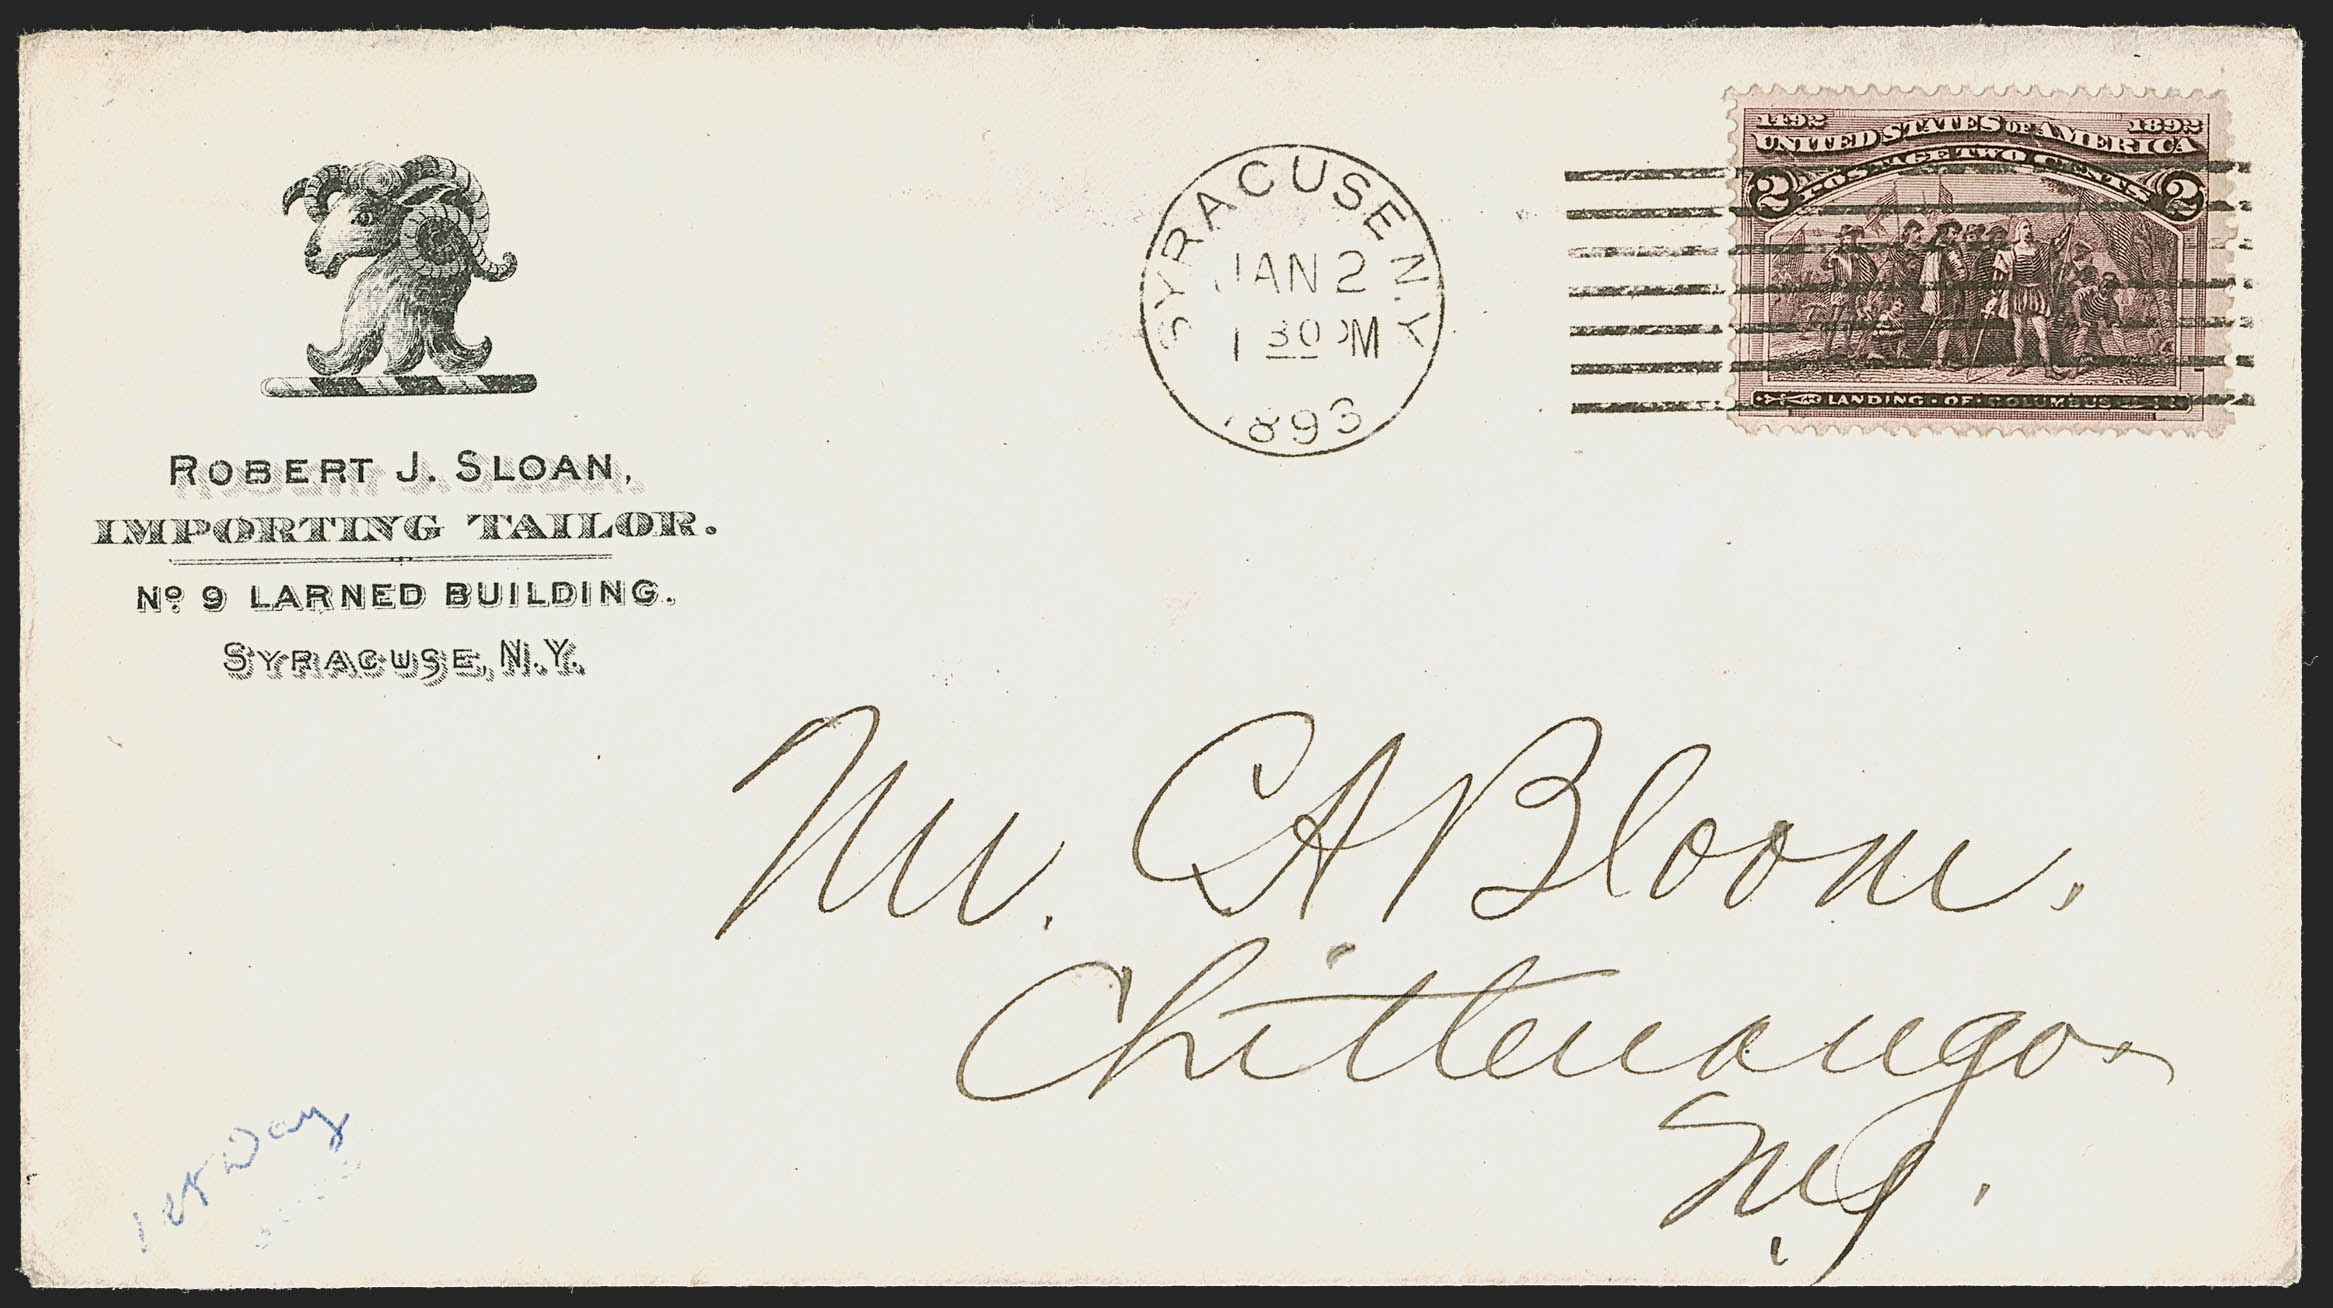 ROBERT J. SLOAN,
IMPORTING TAILOR.
Nº 9 LARNED BUILDING.
SYRACUSE, N.Y.
SYRACUSE N.Y.
JAN 2
1 30 PM
1893
1492 1892
UNITED STATES OF AMERICA
POSTAGE TWO CENTS
2 2
LANDING · OF · COLUMBUS
Mr. C A Bloom.
Chittenango
N.Y.
1st Day